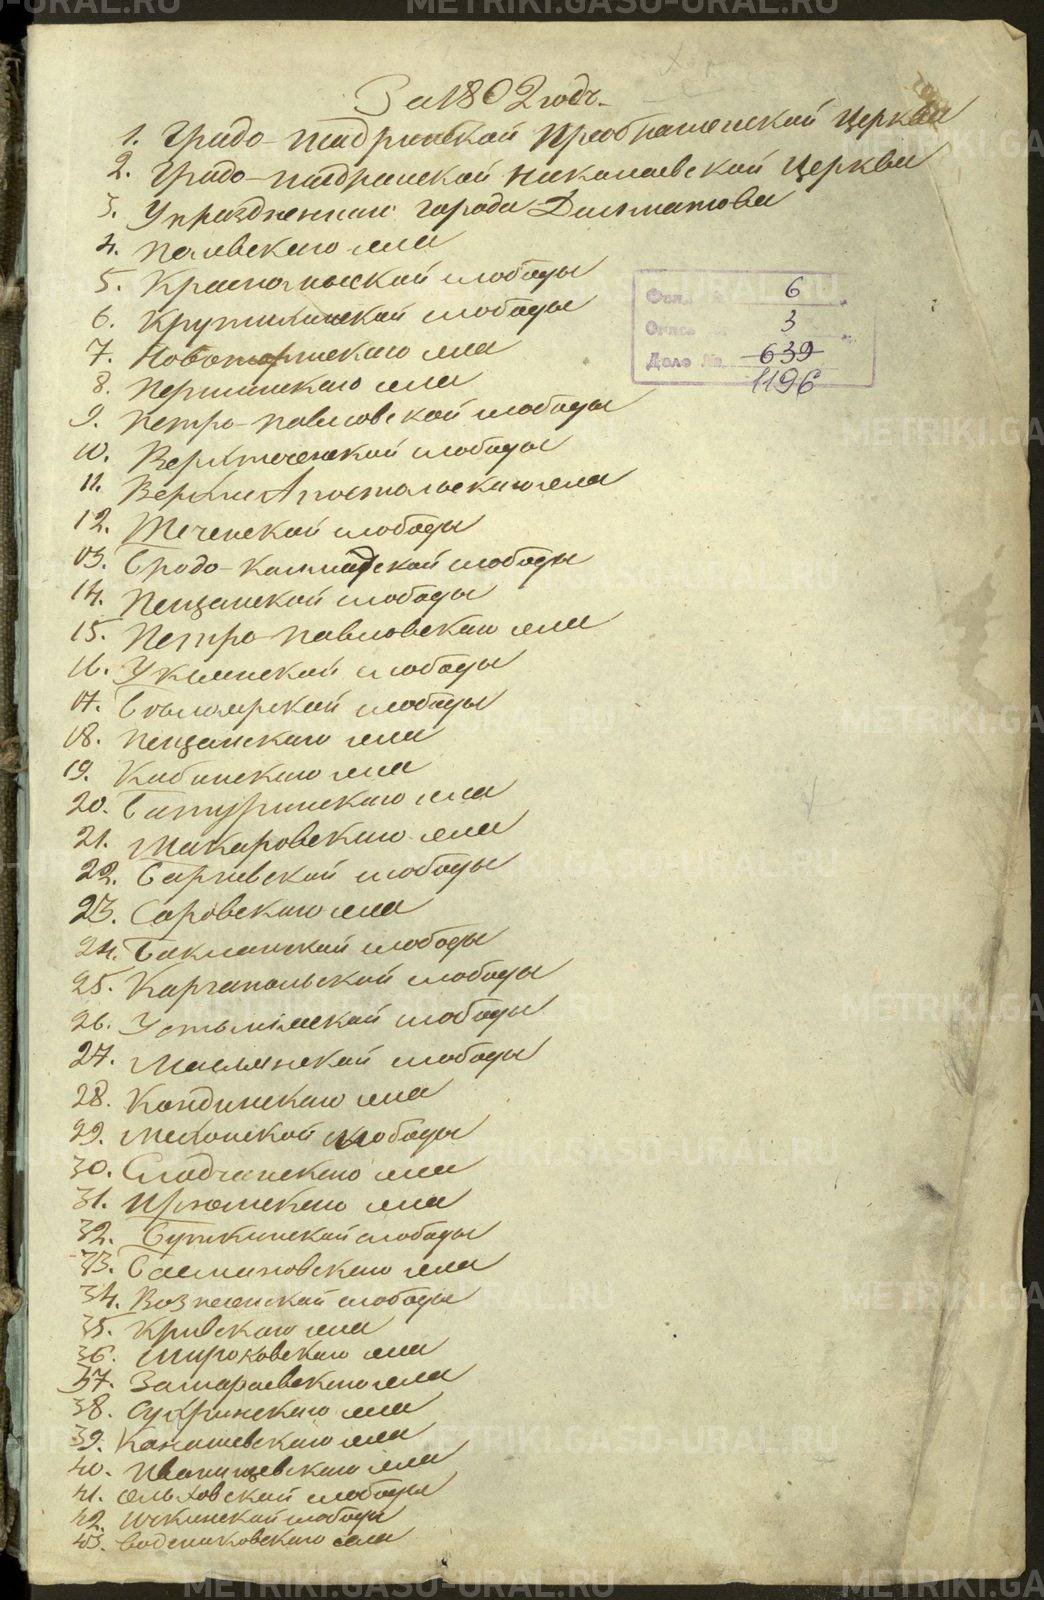 За 1802 годъ.
1. Градо-Шадринской Преображенской Церкви
2. Градо-шадринской Николаевской Церкви
3. Упраздненнаго города Далматова
4. Полевскаго села
5. Красномысской слободы
6. Крутихинской слободы
7. Новоторжскаго села
8. Першинскаго села
9. Петро-павловской слободы
10. Верхтеченской слободы
11. Верхне Апостольскаго села
12. Теченской слободы
13. Бродо-Калмацкой слободы
14. Пещанской слободы
15. Петро-Павловскаго села
16. Уксянской слободы
17. Бѣлоярской слободы
18. Пещанскаго села
19. Кабанскаго села
20. Батуринскаго села
21. Макаровскаго села
22. Барневской слободы
23. Саровскаго села
24. Бакланской слободы
25. Каргапольской слободы
26. Устьміяской слободы
27. Маслянской слободы
28. Кондинскаго села
29. Мехонской слободы
30. Сладчанскаго села
31. Ирюмскаго села
32. Буткинской слободы
33. Басмановскаго села
34. Вознесенской слободы
35. Кривскаго села
36. Широковскаго села
37. Замараевскаго села
38. Сухринскаго села
39. Канашевскаго села
40. Иванищевскаго села
41. Ольховской слободы
42. Ичкинской слободы
43. Водениковскаго села
Фонд № 6
Опись № 3
Дело № 639
1196
METRIKI.GASU-URAL.RU